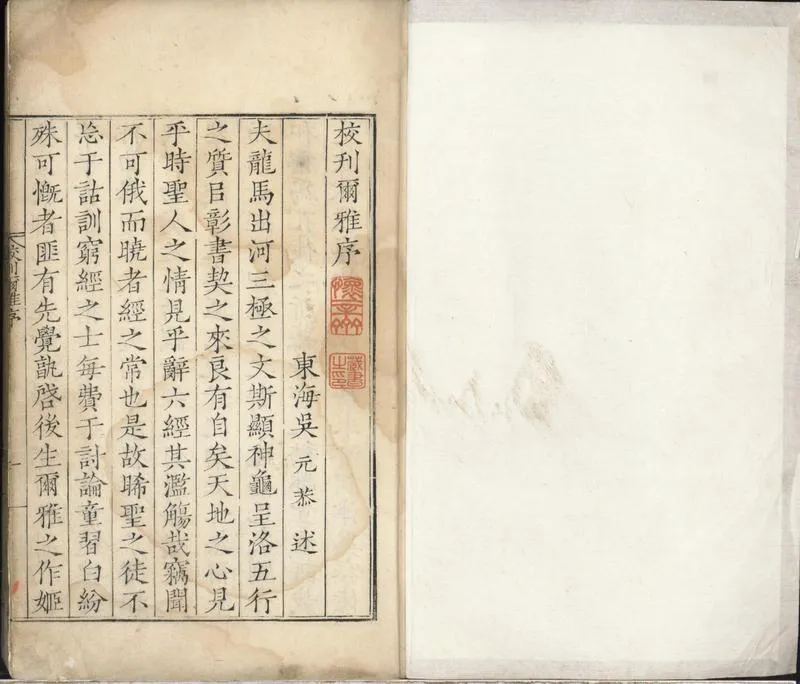 校刊爾雅序
藏書之印
東海吳元恭述
夫龍馬出河三極之文斯顯神龜呈洛五行
之質㠯彰書契之來良有自矣天地之心見
乎時聖人之情見乎辭六經其濫觴哉竊聞
不可俄而曉者經之常也是故睎聖之徒不
于詁訓窮經之士每費于討論童習白紛
殊可慨者匪有先覺孰啓後生爾雅之作姬
校刊爾雅序 一